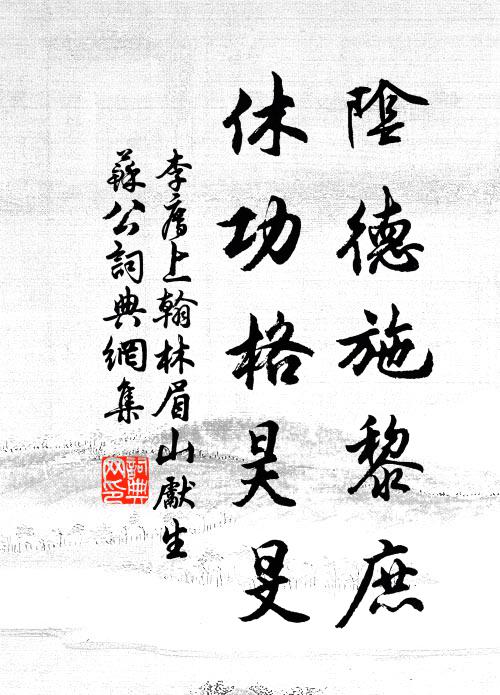 陰德施黎庶
休功格昊旻
李廌上翰林眉山獻生
蘇公詞典網集
詞典
网印